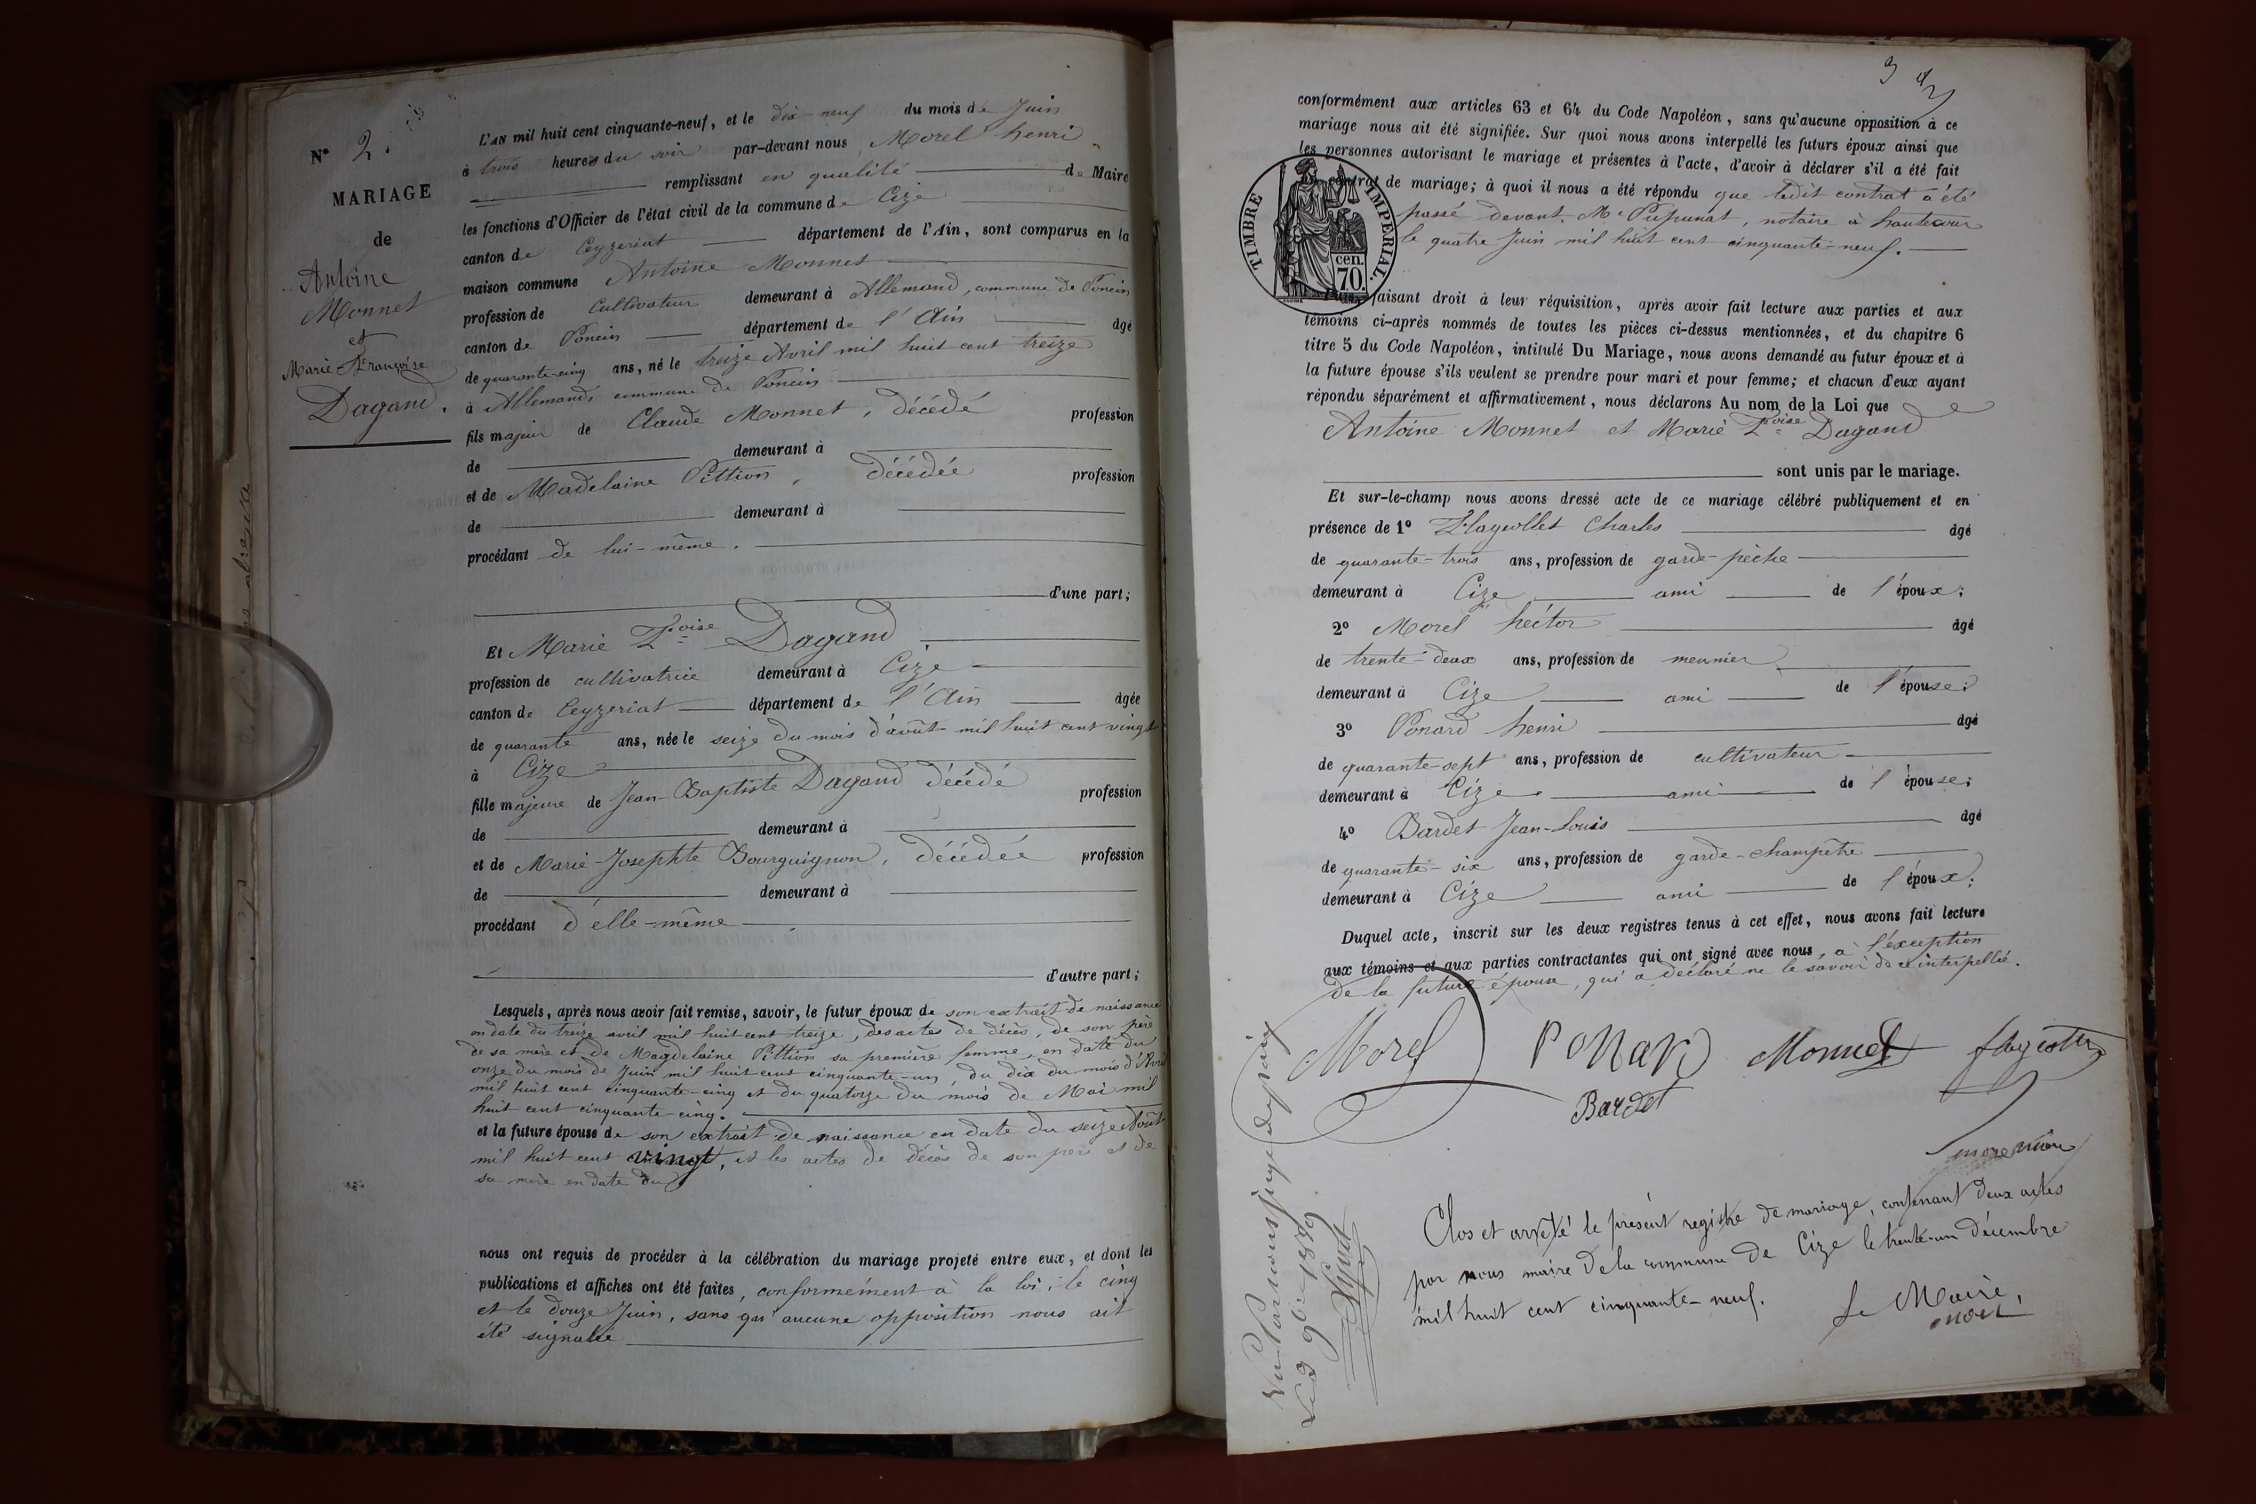 N° 2.
MARIAGE
de
Antoine
Monnet
et
Marie Françoise
Dagand.
L'AN mil huit cent cinquante-neuf, et le dix-neuf du mois de Juin
à trois heures du soir par-devant nous Morel henri
remplissant en qualité de Maire
les fonctions d'Officier de l'état civil de la commune de Cize
canton de Ceyzeriat département de l'Ain, sont comparus en la
maison commune Antoine Monnet
profession de Cultivateur demeurant à Allemand, commune de Poncin
canton de Poncin département de l'Ain âgé
de quarante-cinq ans, né le treize Avril mil huit cent treize
à Allemands commune de Poncin
fils majeur de Claude Monnet, décédé profession
de demeurant à
et de Madelaine Pittion, décédée profession
de demeurant à
procédant de lui-même.
d'une part;
Et Marie Foise Dagand
profession de cultivatrice demeurant à Cize
canton de Ceyzeriat département de l'Ain âgée
de quarante ans, née le seize du mois d'août mil huit cent vingt
à Cize
fille majeure de Jean-Baptiste Dagand décédé profession
de demeurant à
et de Marie-Josephte Bourguignon, décédée profession
de demeurant à
procédant d'elle-même
d'autre part;
Lesquels, après nous avoir fait remise, savoir, le futur époux de son extrait de naissance
en date du treize avril mil huit cent treize, des actes de décès, de son père
de sa mère et de Magdelaine Pittion sa première femme, en date du
onze du mois de Juin mil huit cent cinquante-un, du dix du mois d'Avril
mil huit cent cinquante-cinq et du quatorze du mois de Mai mil
huit cent cinquante-cinq.
et la future épouse de son extrait de naissance en date du seize Août
mil huit cent vingt, et les actes de décès de son père et de
sa mère en date du
nous ont requis de procéder à la célébration du mariage projeté entre eux, et dont les
publications et affiches ont été faites, conformément à la loi, le cinq
et le douze Juin, sans qu'aucune opposition nous ait
été signalée
3
conformément aux articles 63 et 64 du Code Napoléon, sans qu'aucune opposition à ce
mariage nous ait été signifiée. Sur quoi nous avons interpellé les futurs époux ainsi que
les personnes autorisant le mariage et présentes à l'acte, d'avoir à déclarer s'il a été fait
contrat de mariage; à quoi il nous a été répondu que ledit contrat a été
passé devant Me Pupunat, notaire à hautecour
le quatre Juin mil huit cent cinquante-neuf.
TIMBRE IMPERIAL.
cen.
70.
faisant droit à leur réquisition, après avoir fait lecture aux parties et aux
témoins ci-après nommés de toutes les pièces ci-dessus mentionnées, et du chapitre 6
titre 5 du Code Napoléon, intitulé Du Mariage, nous avons demandé au futur époux et à
la future épouse s'ils veulent se prendre pour mari et pour femme; et chacun d'eux ayant
répondu séparément et affirmativement, nous déclarons Au nom de la Loi que
Antoine Monnet et Marie Foise Dagand
sont unis par le mariage.
Et sur-le-champ nous avons dressé acte de ce mariage célébré publiquement et en
présence de 1° Flageollet Charles âgé
de quarante-trois ans, profession de garde-pêche
demeurant à Cize ami de l'époux;
2° Morel héctor âgé
de trente-deux ans, profession de meunier
demeurant à Cize ami de l'épouse;
3° Ponard henri âgé
de quarante-sept ans, profession de cultivateur
demeurant à Cize ami de l'épouse;
4° Bardet Jean-Louis âgé
de quarante-six ans, profession de garde-champêtre
demeurant à Cize ami de l'époux;
Duquel acte, inscrit sur les deux registres tenus à cet effet, nous avons fait lecture
aux témoins et aux parties contractantes qui ont signé avec nous, à l'exception
de la future épouse, qui a déclaré ne le savoir de ce interpellée.
Morel Ponard Monnet
Bardet
Clos et arrêté le présent registre de mariage, contenant deux actes
par nous maire de la commune de Cize le trente-un décembre
mil huit cent cinquante-neuf.
Le Maire,